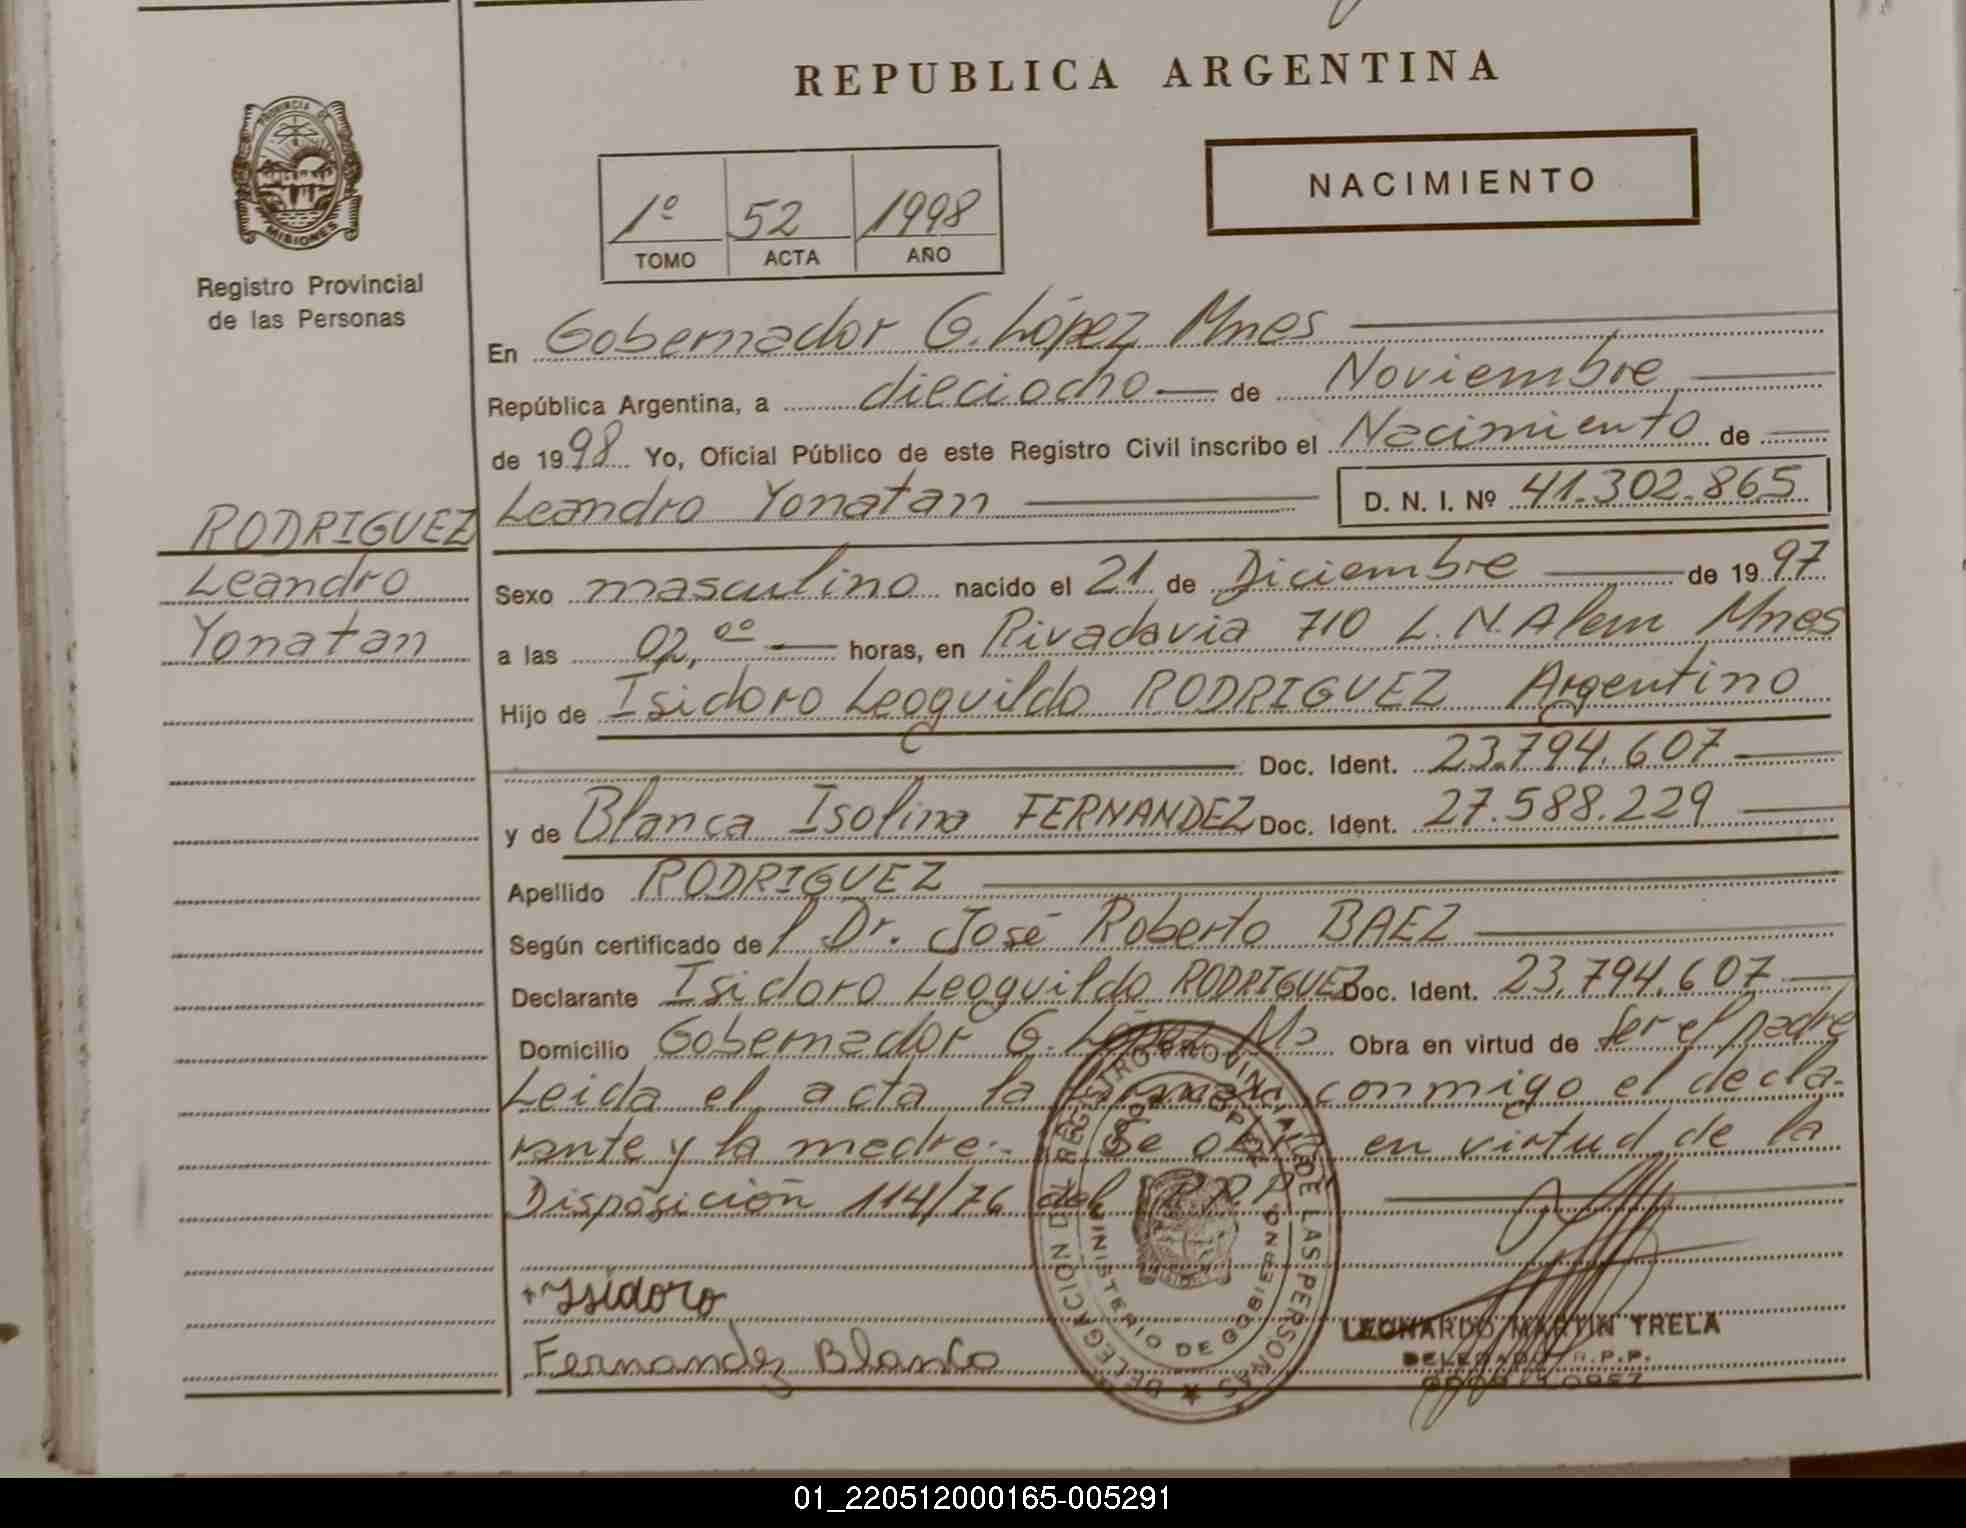 REPUBLICA ARGENTINA
PROVINCIA DE
MISIONES
Registro Provincial
de las Personas
NACIMIENTO
1º 52 1998
TOMO ACTA AÑO
En Gobernador G. López Mnes
República Argentina, a dieciocho de Noviembre
de 1998 Yo, Oficial Público de este Registro Civil inscribo el Nacimiento de
Leandro Yonatan D. N. I. Nº 41.302.865
RODRIGUEZ
Leandro
Yonatan
Sexo masculino nacido el 21 de Diciembre de 1997
a las 02,00 horas, en Rivadavia 710 L.N.Alem Mnes
Hijo de Isidoro Leoguildo RODRIGUEZ Argentino
Doc. Ident. 23.794.607
y de Blanca Isolina FERNANDEZ Doc. Ident. 27.588.229
Apellido RODRIGUEZ
Según certificado del Dr. José Roberto BAEZ
Declarante Isidoro Leoguildo RODRIGUEZ Doc. Ident. 23.794.607
Domicilio Gobernador G. López Ms Obra en virtud de ser el padre
Leida el acta la firman conmigo el decla-
rante y la madre.- Se obra en virtud de la
Disposición 114/76 del R.P.P.
DELEGACION DEL REGISTRO PROVINCIAL DE LAS PERSONAS
MINISTERIO DE GOBIERNO
Isidoro
Fernandez Blanca
LEONARDO MARTIN TRELA
DELEGADO R.P.P.
GDOR. LOPEZ
01_220512000165-005291